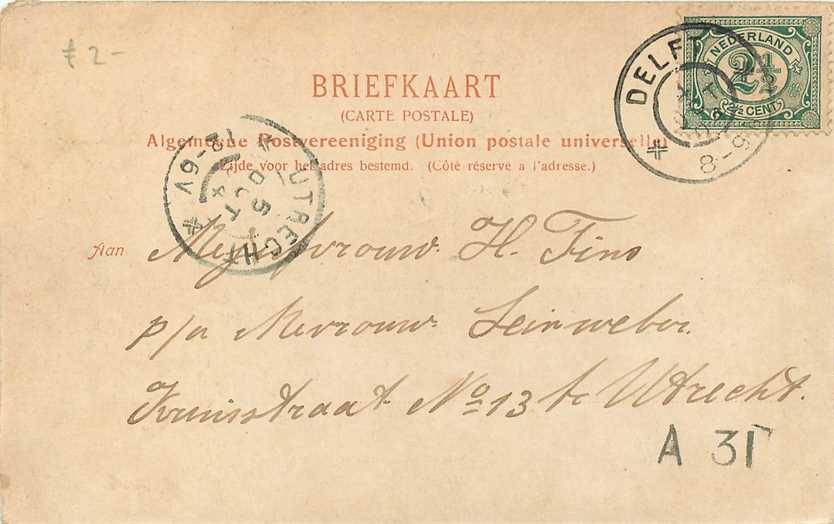 £ 2-
DELFT
8-9
NEDERLAND
2½
2½ CENT
BRIEFKAART
(CARTE POSTALE)
Algemeene Postvereeniging (Union postale universelle)
Zijde voor het adres bestemd. (Côté réservé a l'adresse.)
UTRECHT
5 OCT
12-6V
Aan Mejufvrouw. H. Fino
p/a Mevrouw Leinweber.
Kruisstraat No 13 te Utrecht.
A 31